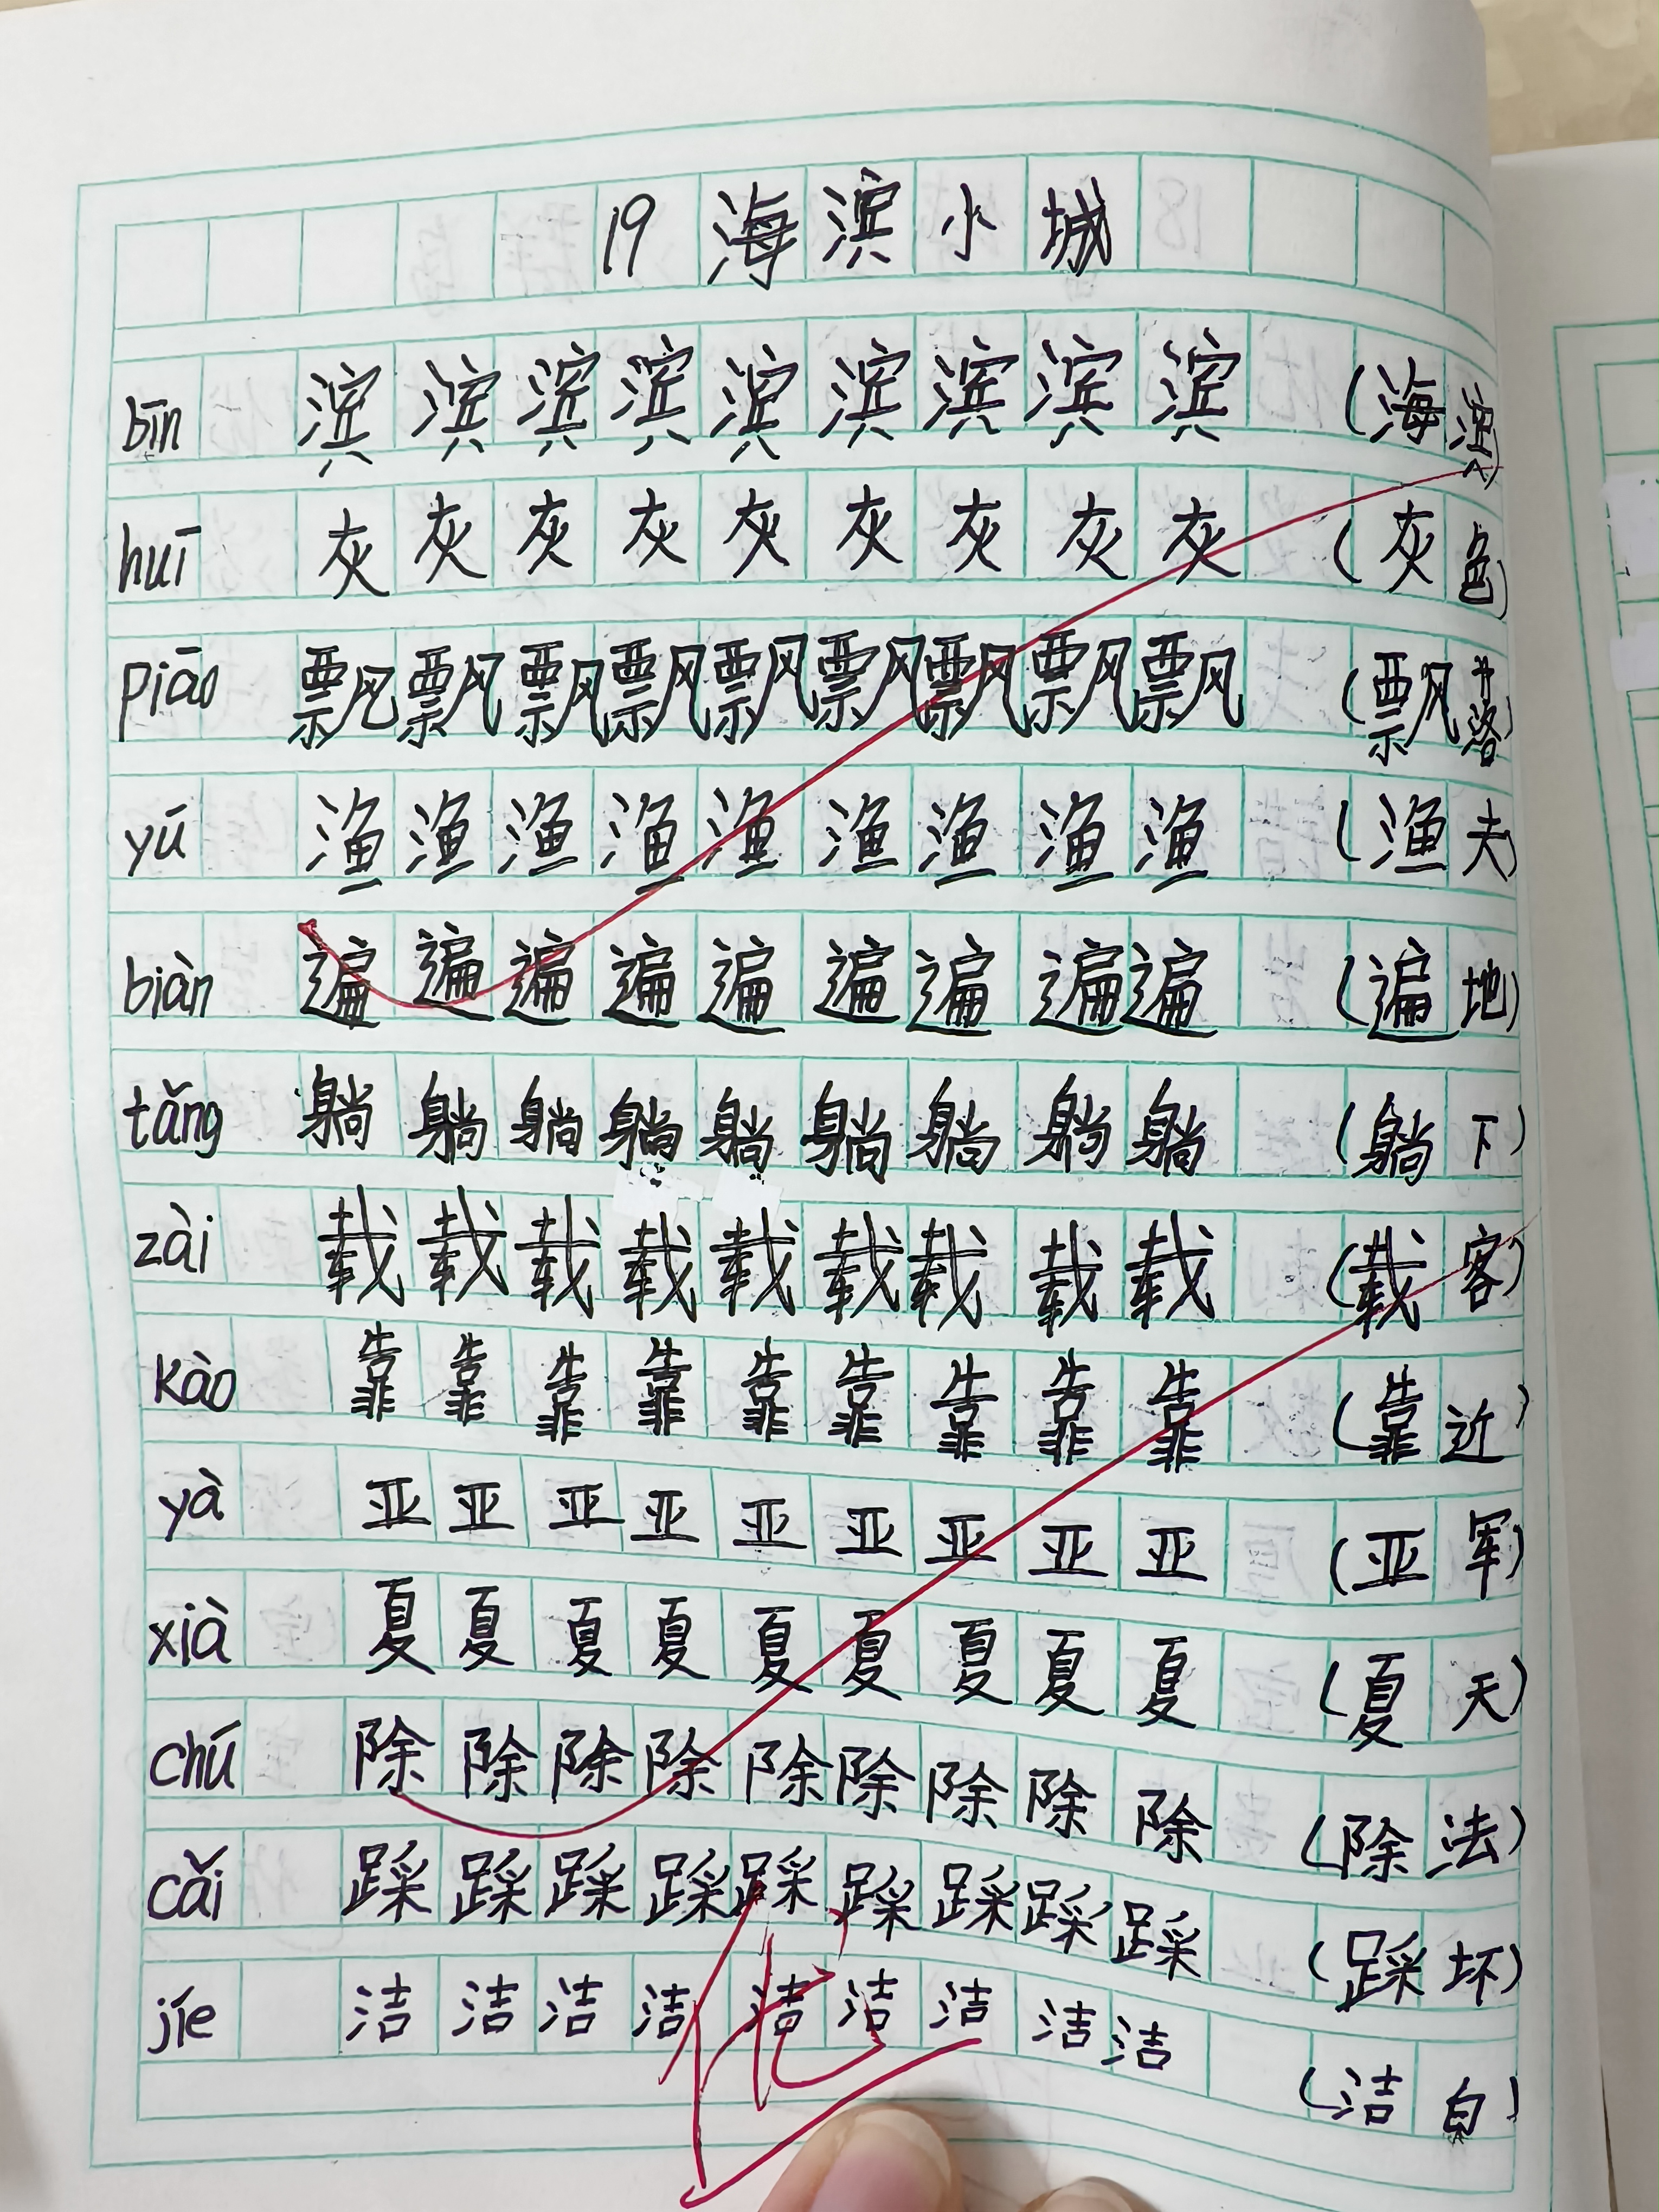 19 海滨小城
bīn 滨滨滨滨滨滨滨滨滨 (海滨)
huī 灰灰灰灰灰灰灰灰灰 (灰色)
piāo 飘飘飘飘飘飘飘飘飘 (飘落)
yú 渔渔渔渔渔渔渔渔渔 (渔夫)
biàn 遍遍遍遍遍遍遍遍遍 (遍地)
tǎng 躺躺躺躺躺躺躺躺躺 (躺下)
zài 载载载载载载载载载 (载客)
kào 靠靠靠靠靠靠靠靠靠 (靠近)
yà 亚亚亚亚亚亚亚亚亚 (亚军)
xià 夏夏夏夏夏夏夏夏夏 (夏天)
chú 除除除除除除除除除 (除法)
cǎi 踩踩踩踩踩踩踩踩踩 (踩坏)
jíe 洁洁洁洁洁洁洁洁洁 (洁白)
优